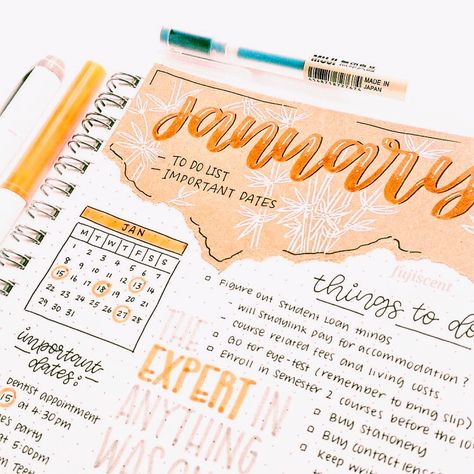 MUJI
MADE IN
JAPAN
january
- TO DO LIST
- IMPORTANT DATES
fujiscent
JAN
M T W T F S S
1 2 3 4 5 6 7
8 9 10 11 12 13 14
15 16 17 18 19 20 21
22 23 24 25 26 27 28
29 30 31
important
dates:
DENTIST APPOINTMENT
15 at 4:30PM
at 5:00PM
THE
EXPERT IN
ANYTHING
WAS
things to do
Figure out Student Loan things
- will studylink pay for accommodation?
- course related fees and living costs.
Go for eye-test (remember to bring slip)
Enroll in Semester 2 courses before the
Buy Stationery
Buy contact
Keep